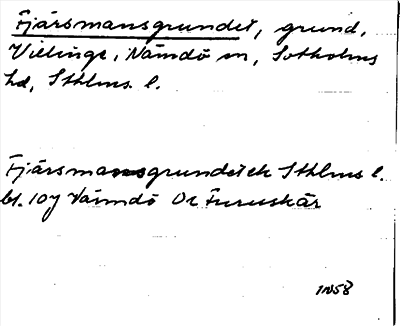 Fjärsmansgrundet, grund,
Villinge, Nämdö sn, Sotholms
hd, Sthlms l.
Fjärsmansgrundet ek Sthlms l.
bl. 107 Värmdö Or Furuskär
1N58